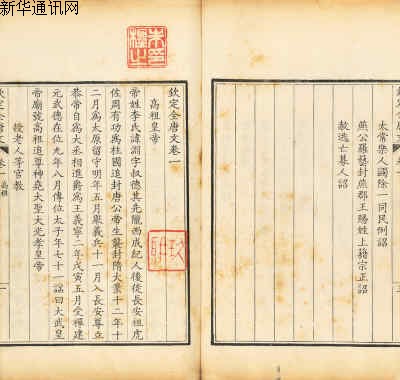 新华通讯网
太常樂人蠲除一同民例詔
燕公羅藝封燕郡王賜姓上籍宗正詔
赦逃亡募人詔
欽定全唐文卷一
高祖皇帝
帝姓李氏諱淵字叔德其先隴西成紀人後徙長安祖虎
佐周有功為柱國追封唐公帝生襲封隋大業十二年十
二月為太原留守明年五月興義兵十一月入長安尊立
恭帝自為大丞相進爵為王義寧二年戊寅五月受禪建
元武德在位九年八月傳位太子年七十一謚曰大武皇
帝廟號高祖追尊神堯大聖大光孝皇帝
授老人等官教
欽定全唐文 卷一 高祖 一